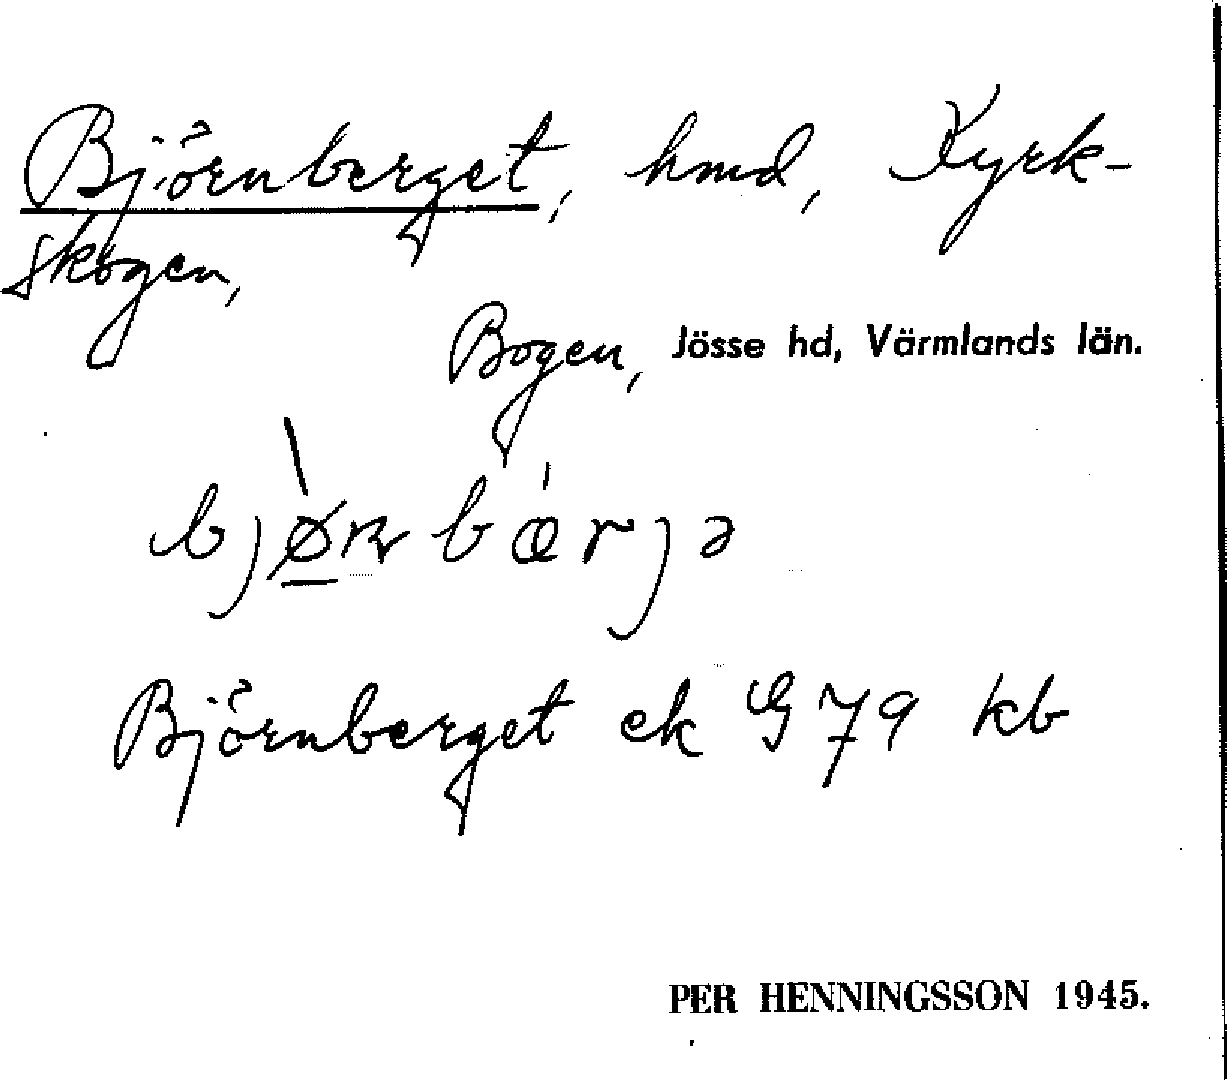 Björnberget, hmd, Kyrk-
skogen,
Bogen, Jösse hd, Värmlands län.
bjø̀n̥bǽrjə
Björnberget ek G 79 kb
PER HENNINGSSON 1945.